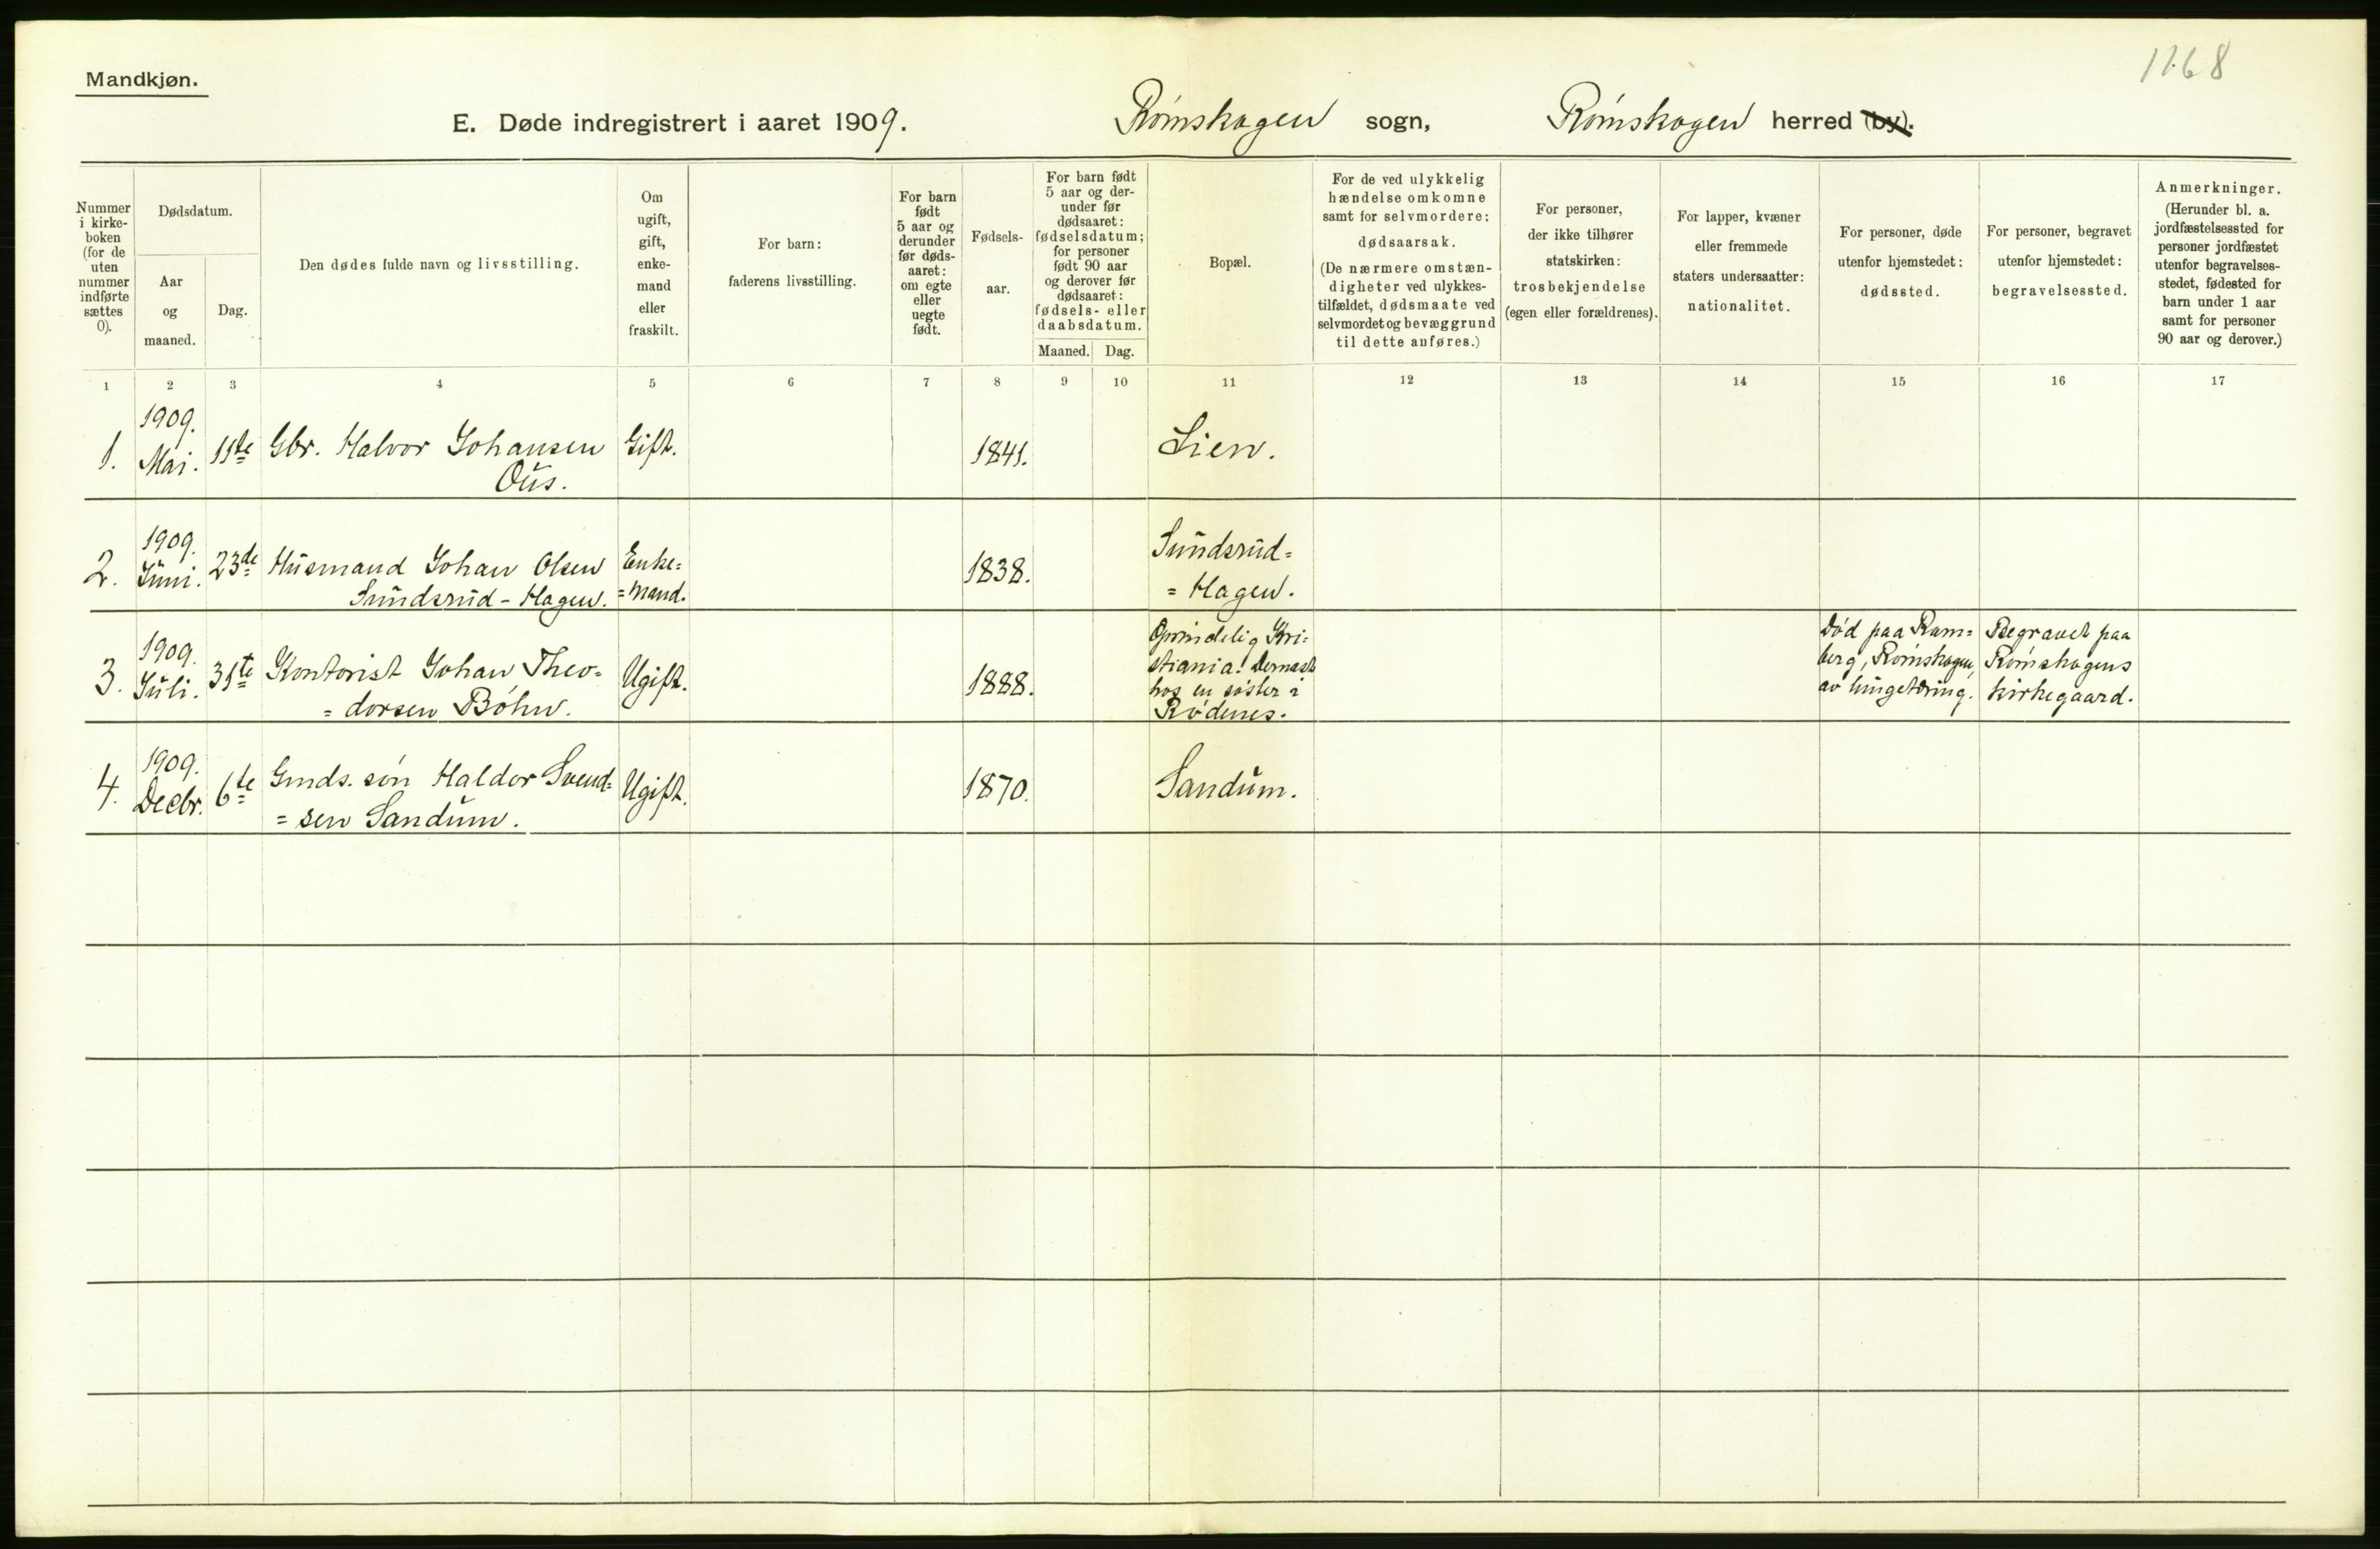 1168
Mandkjøn.
E. Døde indregistrert i aaret 1909. Rømskogen sogn, Rømskogen herred (by).
Nummer
i kirke-
boken
(for de
uten
nummer
indførte
sættes
0).
Dødsdatum.
Aar
og
maaned.
Dag.
Den dødes fulde navn og livsstilling.
Om
ugift,
gift,
enke-
mand
eller
fraskilt.
For barn:
faderens livsstilling.
For barn
født
5 aar og
derunder
før døds-
aaret:
om egte
eller
uegte
født.
Fødsels-
aar.
For barn født
5 aar og der-
under før
dødsaaret:
fødselsdatum;
for personer
født 90 aar
og derover før
dødsaaret:
fødsels- eller
daabsdatum.
Maaned. Dag.
Bopæl.
For de ved ulykkelig
hændelse omkomne
samt for selvmordere:
dødsaarsak.
(De nærmere omstæn-
digheter ved ulykkes-
tilfældet, dødsmaate ved
selvmordet og bevæggrund
til dette anføres.)
For personer,
der ikke tilhører
statskirken:
trosbekjendelse
(egen eller forældrenes).
For lapper, kvæner
eller fremmede
staters undersaatter:
nationalitet.
For personer, døde
utenfor hjemstedet:
dødssted.
For personer, begravet
utenfor hjemstedet:
begravelsessted.
Anmerkninger.
(Herunder bl. a.
jordfæstelsessted for
personer jordfæstet
utenfor begravelses-
stedet, fødested for
barn under 1 aar
samt for personer
90 aar og derover.)
1 2 3 4 5 6 7 8 9 10 11 12 13 14 15 16 17
1909.
1. Mai. 11te Gbr. Halvor Johansen Gift. 1841. Lien.
Ous.
1909. Sundsrud=
2. Juni. 23de Husmand Johan Olsen Enke= 1838.
Sundsrud-Hagen. =mand. = Hagen.
1909.
3. Juli. 31te Kontorist Johan Theo= Ugift. 1888.
= dorsen Böhn.
Oprindelig Kri=
stiania. Dernæst
hos en søster i
Rødenes.
Død paa Ram=
berg, Rømskogen,
av lungetæring.
Begravet paa
Rømskogens
kirkegaard.
1909.
4. Decbr. 6te Gmds. søn Haldor Svend= Ugift. 1870. Sandum.
= sen Sandum.